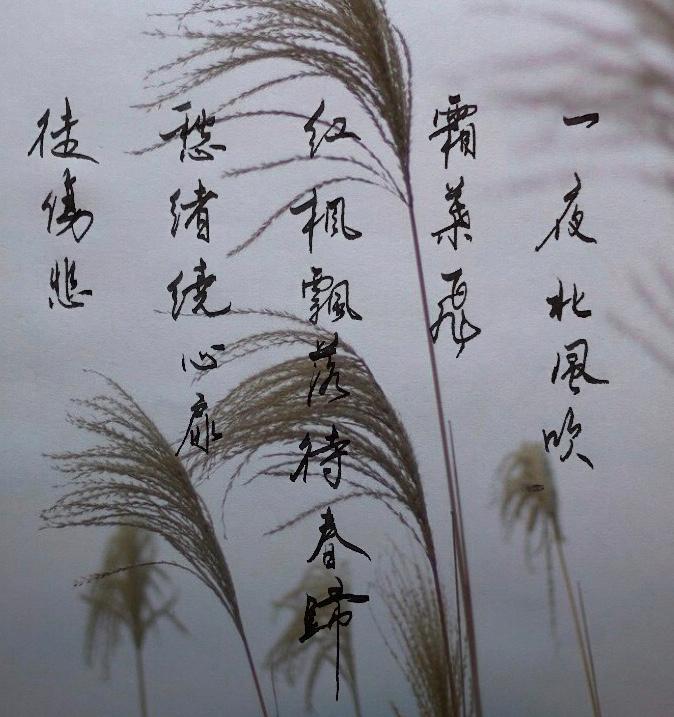 一夜北風吹
霜葉飛
紅楓飄落待春歸
愁緒繞心扉
徒傷悲